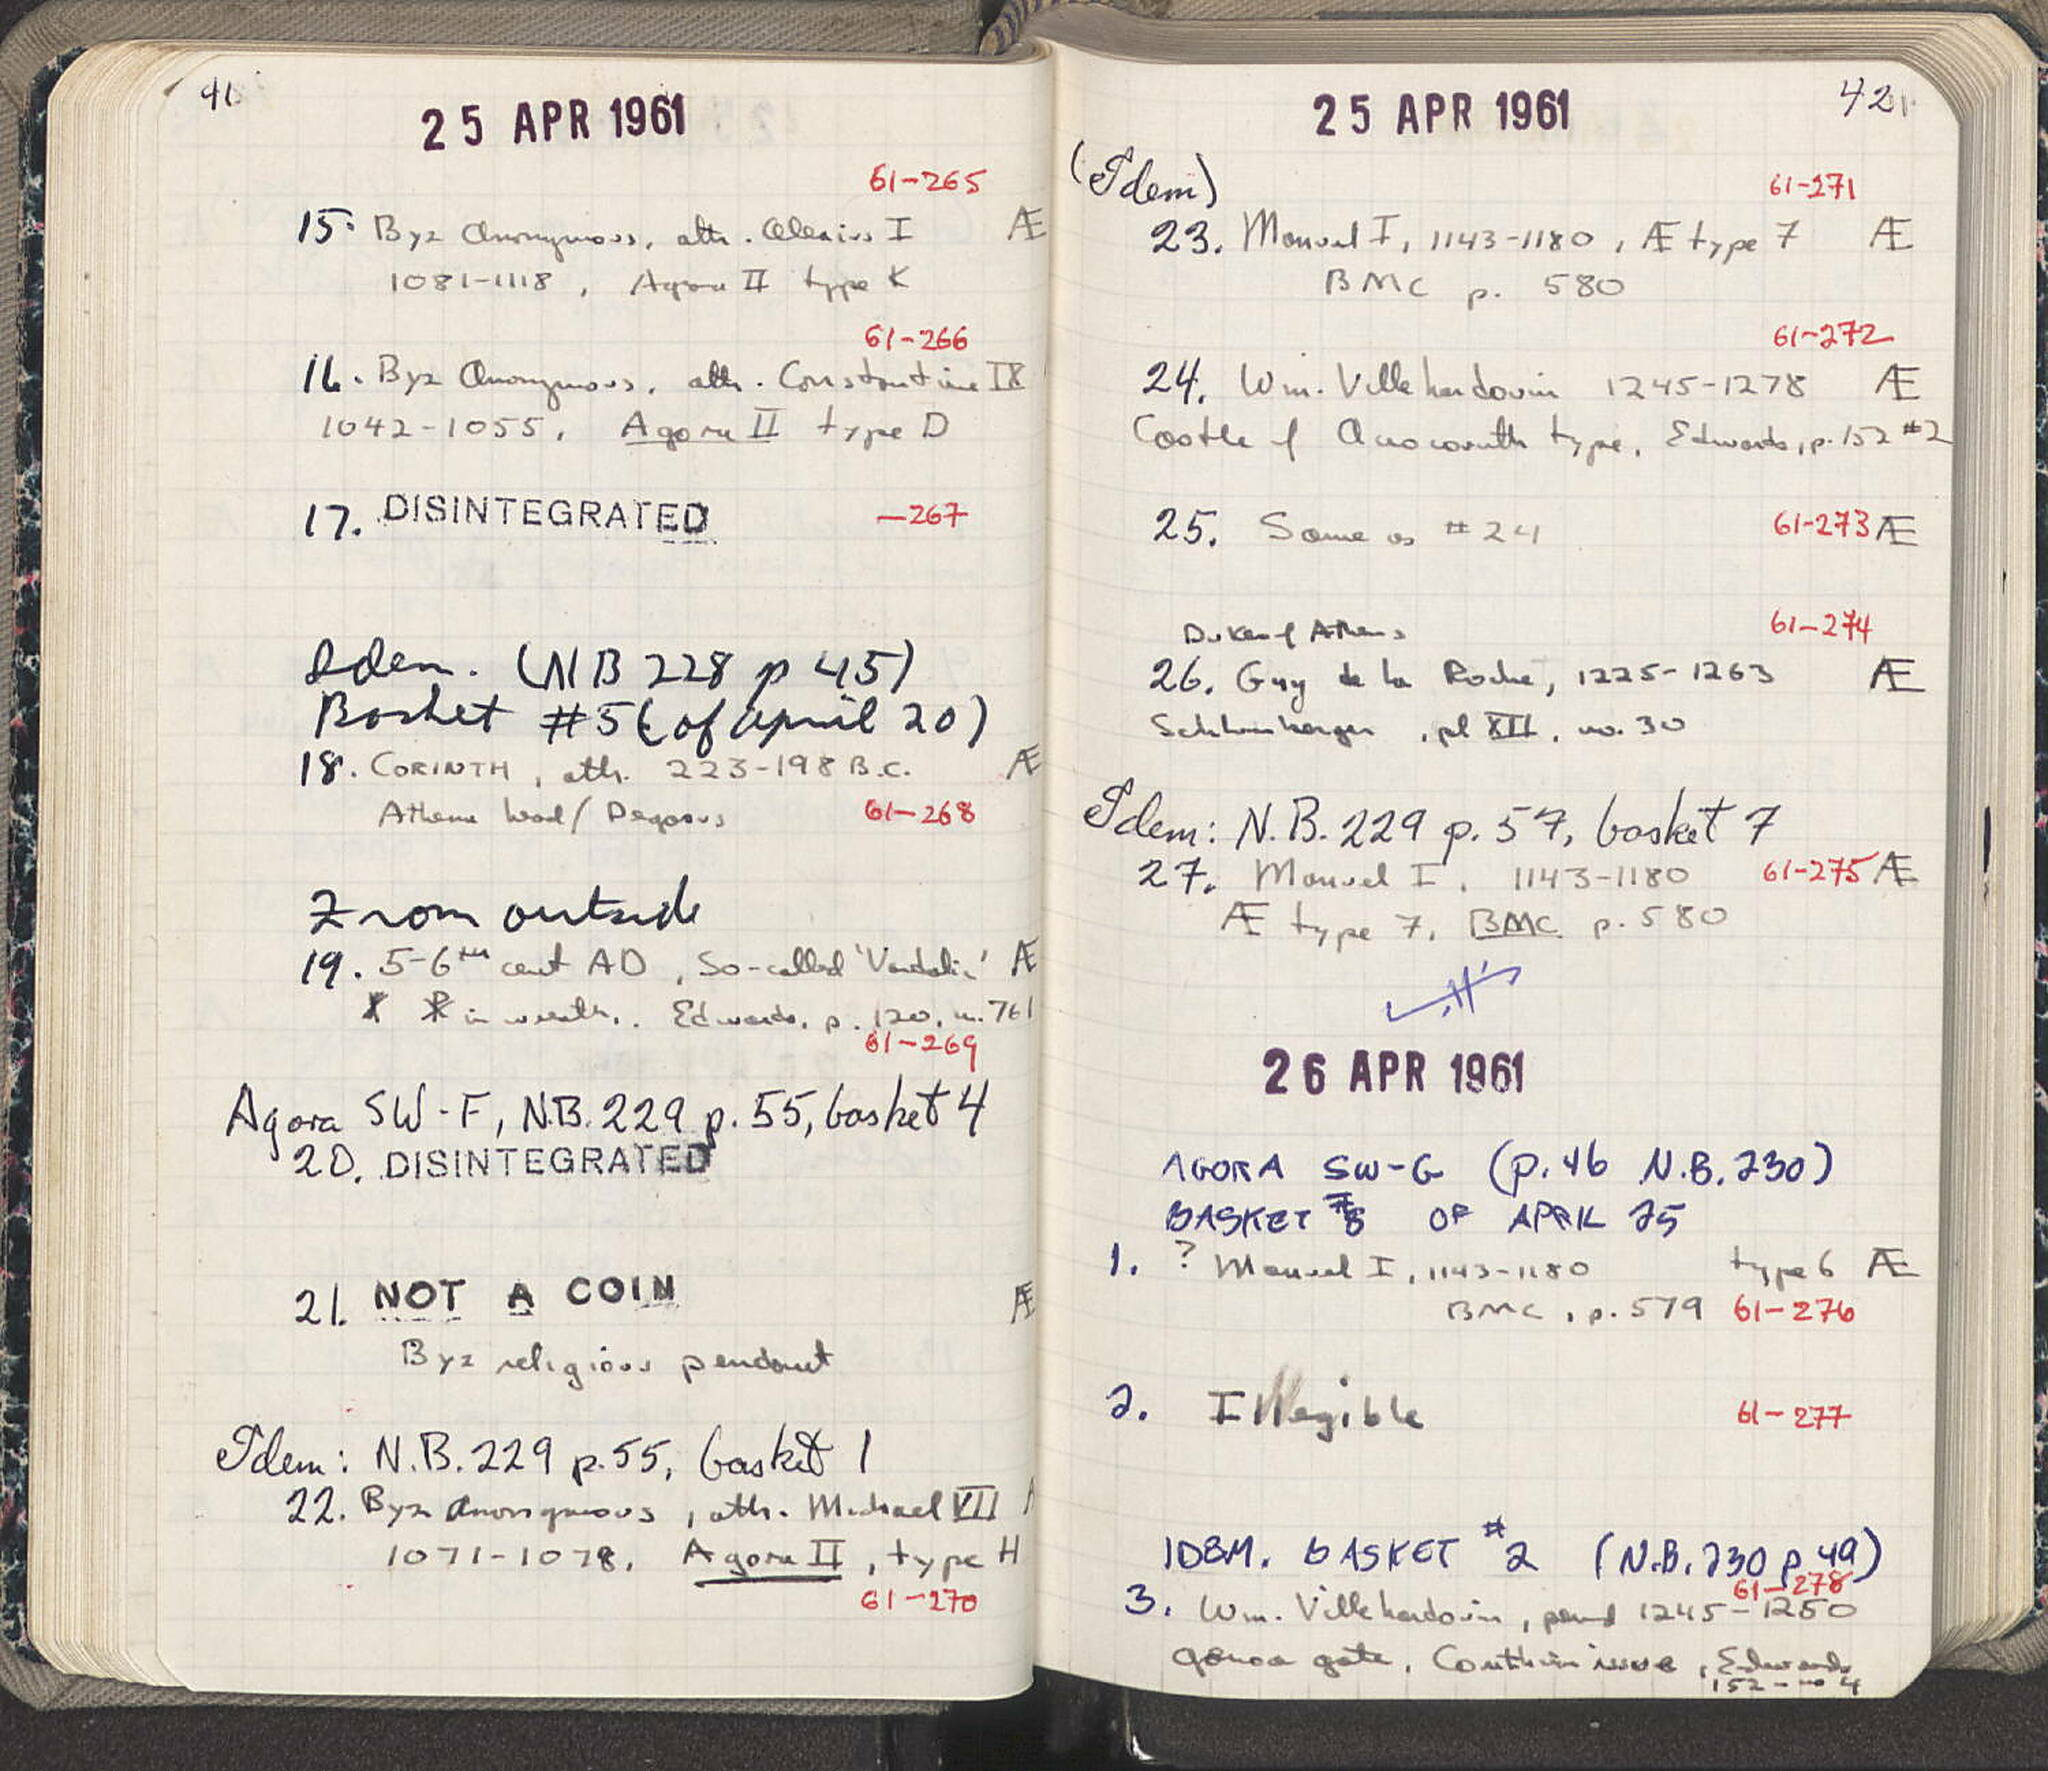 41
25 APR 1961
61-265
15. Byz Anonymous, attr. Alexius I Æ
1081-1118, Agora II type K
61-266
16. Byz Anonymous, attr. Constantine IX
1042-1055, Agora II type D
17. DISINTEGRATED -267
Idem. (NB 228 p 45)
Basket #5 (of april 20)
18. CORINTH, attr. 223-198 B.C. Æ
Athena head/Pegasus 61-268
From outside
19. 5-6th cent AD, So-called 'Vandalic' Æ
in wreath, Edwards, p. 120, n. 761
61-269
Agora SW-F, N.B. 229 p. 55, basket 4
20. DISINTEGRATED
21. NOT A COIN Æ
Byz religious pendant
Idem: N.B. 229 p. 55, basket 1
22. Byz Anonymous, attr. Michael VII
1071-1078, Agora II, type H
61-270
42
25 APR 1961
(Idem) 61-271
23. Manuel I, 1143-1180, Æ type 7 Æ
BMC p. 580
61-272
24. Wm. Villehardouin 1245-1278 Æ
Castle of Acrocorinth type, Edwards, p. 152 #2
25. Same as #24 61-273 Æ
Duke of Athens 61-274
26. Guy de la Roche, 1225-1263 Æ
Schlumberger, pl XII, no. 30
Idem: N.B. 229 p. 57, basket 7
27. Manuel I, 1143-1180 61-275 Æ
Æ type 7, BMC p. 580
26 APR 1961
AGORA SW-G (p. 46 N.B. 230)
BASKET #8 OF APRIL 25
1. ? Manuel I, 1143-1180 type 6 Æ
BMC, p. 579 61-276
2. Illegible 61-277
IDEM. BASKET #2 (N.B. 230 p 49)
61-278
3. Wm. Villehardouin, period 1245-1250
Genoa gate, Corinthian issue, Edwards
152 - no 4